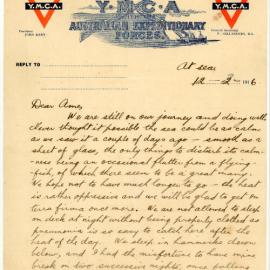 Y.M.C.A.
Y.M.C.A
Y.M.C.A.
WITH THE
AUSTRALIAN EXPEDITIONARY
FORCES.
REPLY TO
At sea
12-2-1916
Dear Agnes
We are still on our journey and doing well.
Never thought it possible the sea could be so calm
as we saw it a couple of days ago - smooth as a
sheet of glass, the only things to disturb its calm-
-ness being an occasional flutter from a flying-
-fish, of which there seem to be a great many.
We hope not to have much longer to go - the heat
is rather oppressive and we will be glad to get on
terra firma once more. We are not allowed to sleep
on deck at night without being properly clothed as
pneumonia is so easy to catch here after the
heat of the day. We sleep in hammocks down
below, and I had the misfortune to have mine
break on two successive nights, once falling